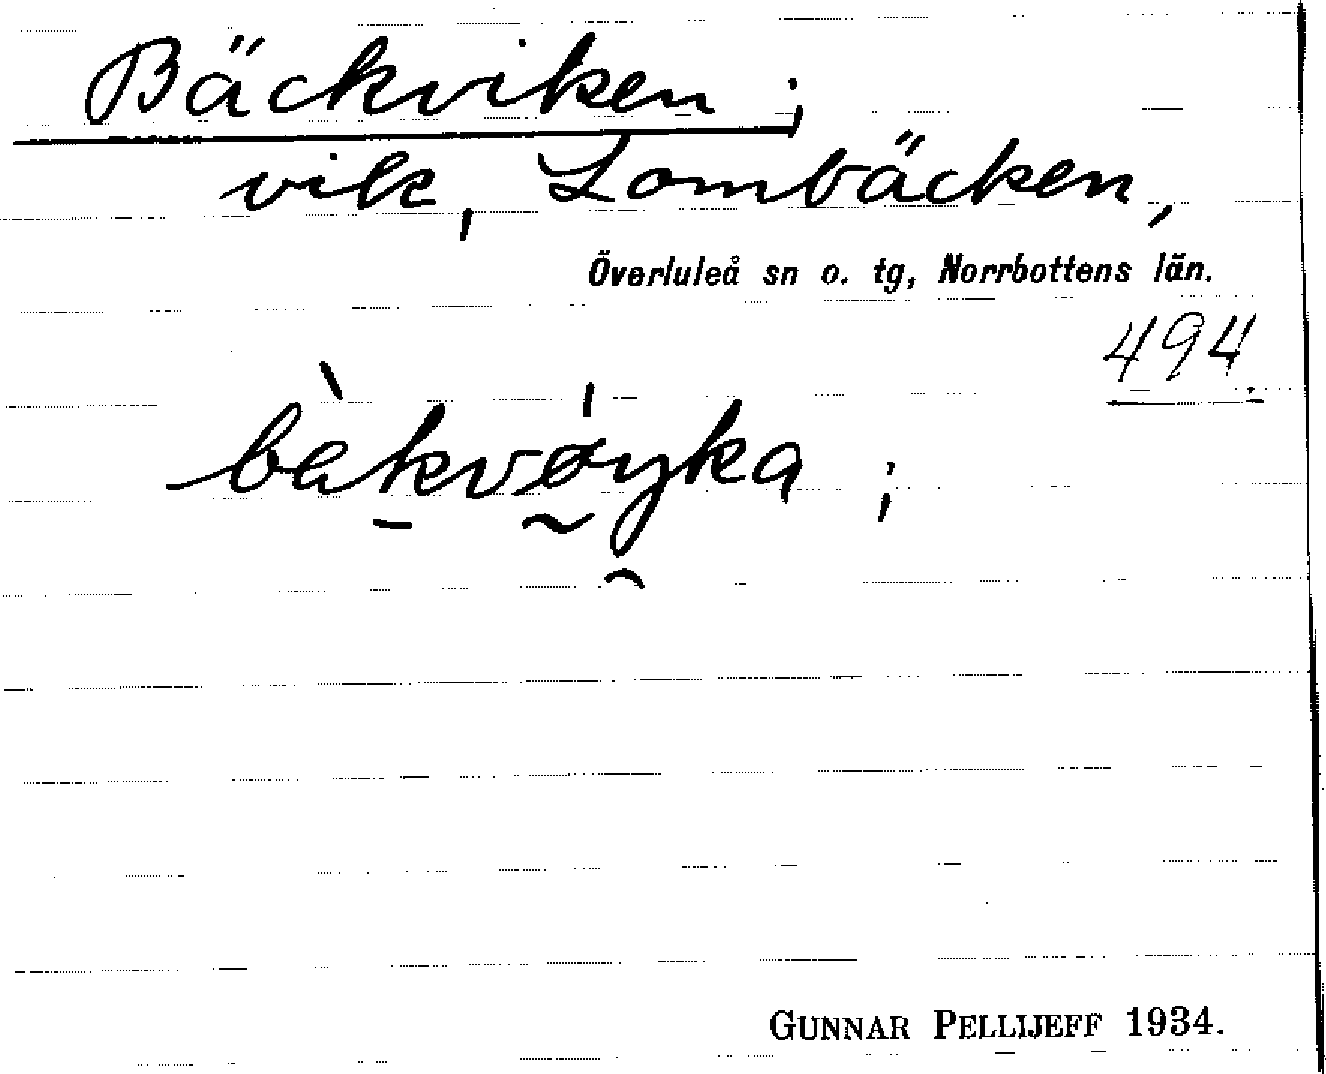 Bäckviken ;
vik, Lombäcken,
Överluleå sn o. tg, Norrbottens län.
494
bèkvøyka ;
GUNNAR PELLIJEFF 1934.